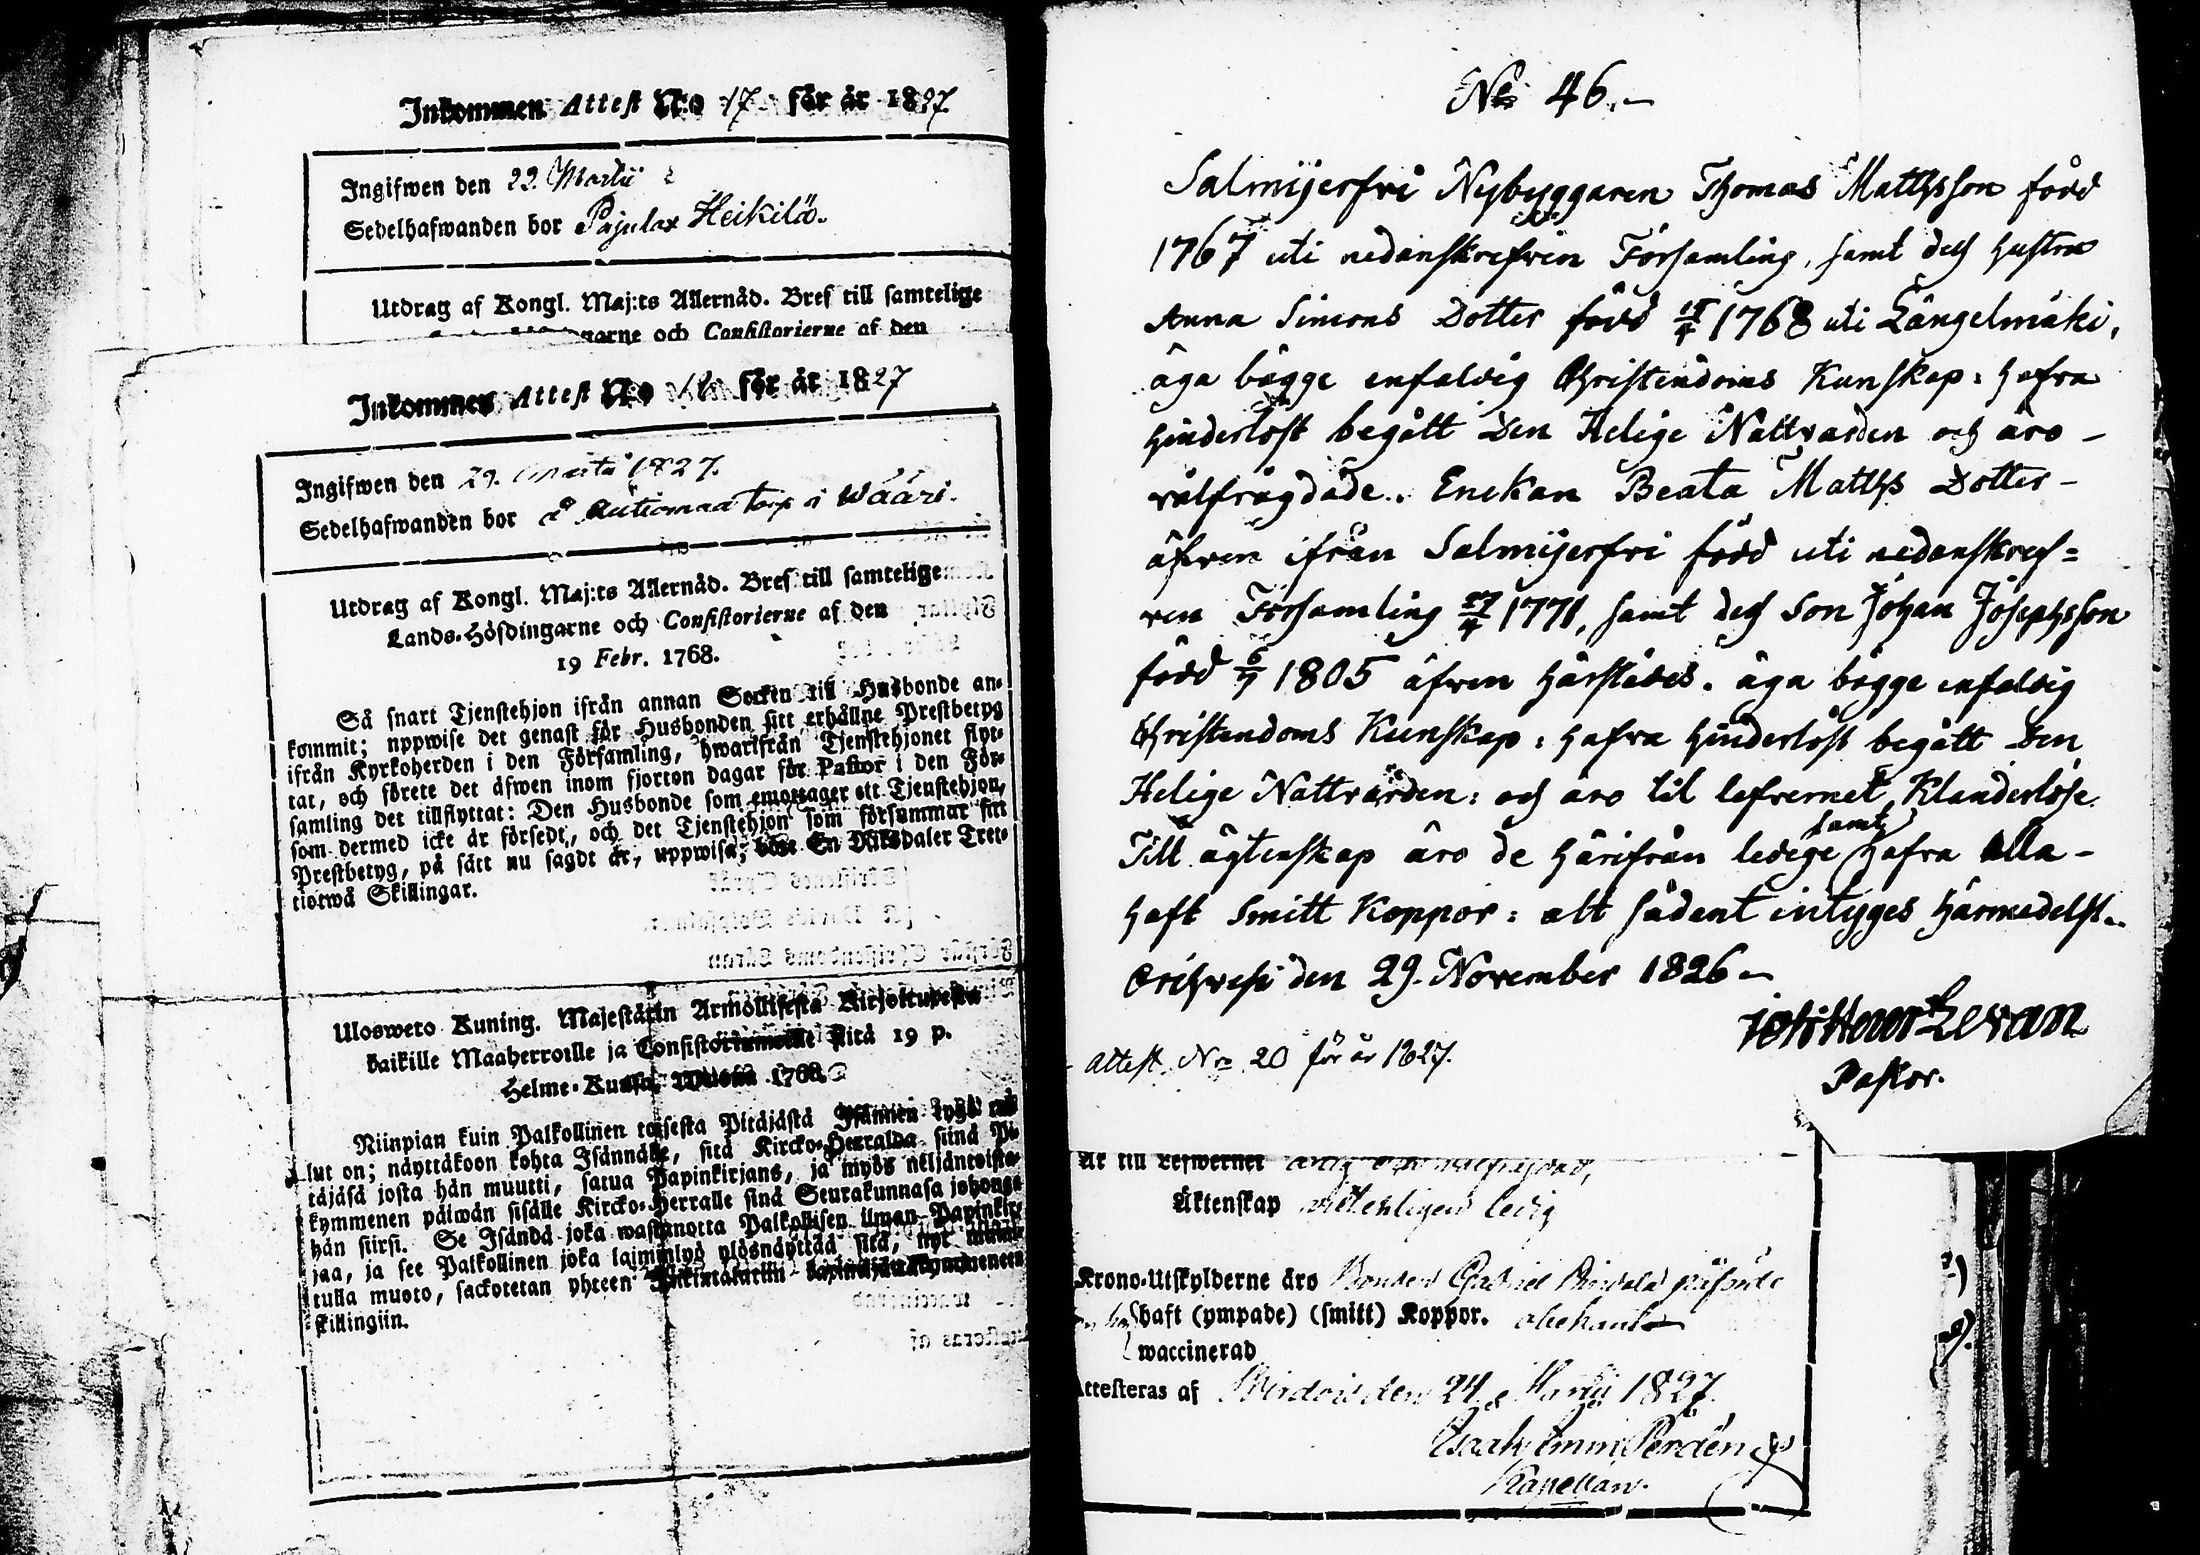 Inkommen Attest N:o 17 för år 1827
Ingifwen den 22. Martii
Sedelhafwanden bor Pajulax Heikilä.
Utdrag af Kongl. Maj:ts Allernåd. Bref till samtelige
garne och Consistorierne af den
Inkommen Attest N:o för år 1827
Ingifwen den 29. Martii 1827.
Sedelhafwanden bor å torp i Wääri.
Utdrag af Kongl. Maj:ts Allernåd. Bref till samtelige
Lands-Höfdingarne och Consistorierne af den
19 Febr. 1768.
Så snart Tjenstehjon ifrån annan Socken till Husbonde an-
kommit; uppwise det genast för Husbonden sitt erhållne Prestbetyg
ifrån Kyrkoherden i den Församling, hwarifrån Tjenstehjonet flyt-
tat, och förete det äfwen inom fjorton dagar för Pastor i den För-
samling det tillflyttat: Den Husbonde som emottager ett Tjenstehjon,
som dermed icke är försedt, och det Tjenstehjon som försummar sitt
Prestbetyg, på sätt nu sagdt är, uppwisa, böte En Riksdaler Tret-
tiotwå Skillingar.
Ulosweto Kuning. Majestätin Armollisesta Kirjoituxesta
kaikille Maaherroille ja Consistoriumeille sitä 19 p.
Helme-Kuusa, Wuonna 1768.
Niinpian kuin Palkollinen toisesta Pitäjästä Isännän tygö tul-
lut on; näyttäkoon kohta Isännälle, sitä Kircko-Herralda siinä Pi-
täjäsä josta hän muutti, satua Papinkirjans, ja myös neljäntoista-
kymmenen päiwän sisälle Kircko-Herralle siinä Seurakunnasa johonga
hän siirsi. Se Isändä joka wastanotta Palkollisen ilman Papinkir-
jaa, ja see Palkollinen joka laiminlyö ylösnäyttää sitä, nyt
tulla muoto, sackotetan yhteen Rikintalariin
skillingiin.
No 46.
Salmijerfvi Nybyggaren Thomas Mattsson född
1767 uti nedanskrefven Församling, samt dess hustru
Anna Simons Dotter född 1768 uti Längelmäki,
äga bägge enfaldig Christendoms Kunskap: hafva
hinderlöst begått Den Helige Nattvarden och äro
välfrägdade. Enckan Beata Matths Dotter
äfven ifrån Salmijerfvi född uti nedanskref=
ven Församling 27/4 1771, samt dess Son Johan Josephsson
född 6/7 1805 äfven härstädes. äga bägge enfaldig
Christendoms Kunskap: hafva hinderlöst begått Den
Helige Nattvarden: och äro til lefvernet Klanderlöse.
Till ägtenskap äro de härifrån ledige samt hafva alla
haft Smitt Koppor: alt sådant intyges härmedelst.
Orihvesi den 29. November 1826
Levan
Pastor.
Attest. No 20 för år 1827.
Är till Lefwernet
Äktenskap wetterligen ledig
Krono-Utskylderne äro Bonden Gabriel
haft (ympade) (smitt) Koppor.
waccinerad
Attesteras af Wirdois den 24 Martii 1827.
Kapellan.